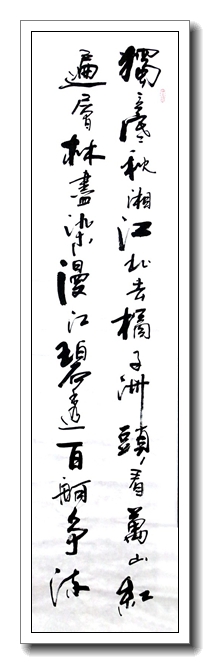 獨立寒秋湘江北去橘子洲頭看萬山紅
遍層林盡染漫江碧透百舸争流